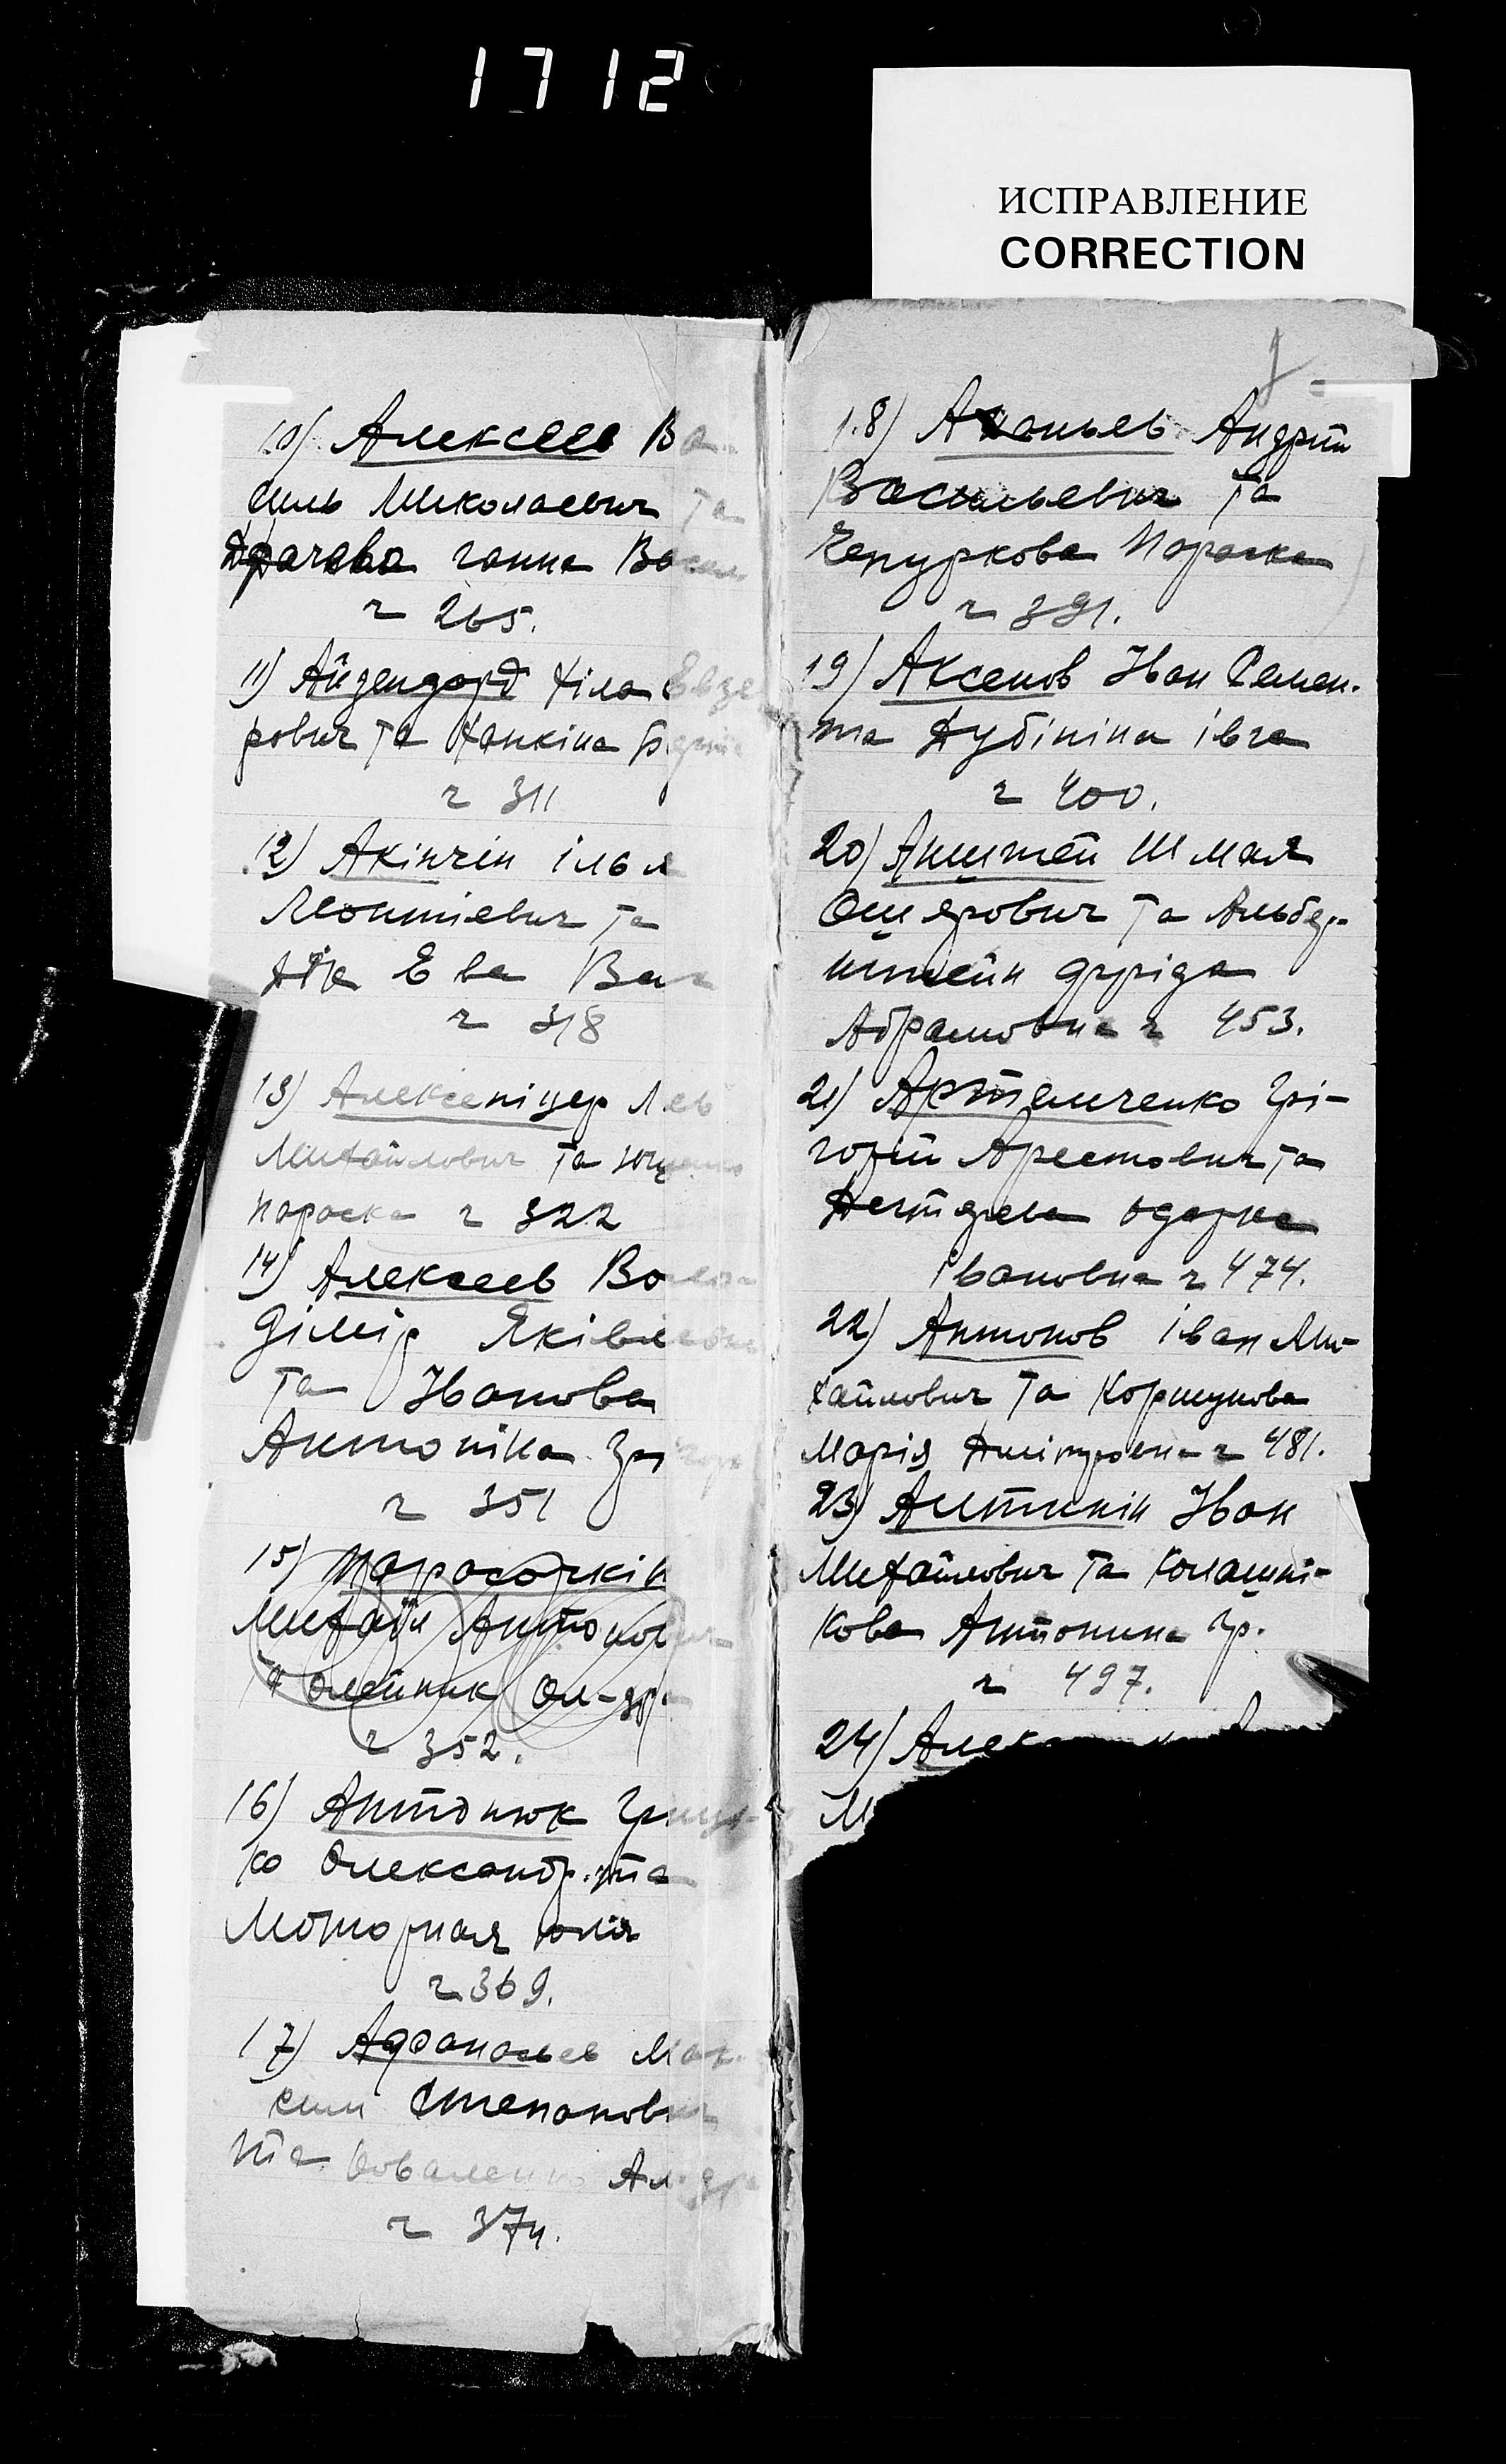 1712
ИСПРАВЛЕНИЕ
CORRECTION
10) Алексеев Ва-
силь Миколаевич та
Драчова ганна Васил
ч 265.
11) Айзендорд Хіла Евзе
рович та Ханкина
ч 311
12) Акінчін ілья
Леонтіевич та
Ева
ч 318
13) Алексеніцер Лев
Михайлович та
Параска ч 322
14) Алексеев Воло
дімір Яківлевич
та Іванова
Антоніна Григор
ч 351
15) Карасочкін
Михайл Антонович
та Олейник Ол-др
ч 352.
16) Антонюк Гриць-
ко Олександр. та
Моторная юлія
ч 369.
17) Афанасьев Мак-
сим Степанович
та Коваленко Ал-др
ч 374.
18) Ананьев Андрій
Васильевич та
Чепуркова Параска
ч 391.
19) Аксенов Іван Семен.
та Дубініна івга
ч 400.
20) Анштей Шмая
Ошерович та Альбер-
штейн фріда
Абрамовна ч 453.
21) Артемченко Грі-
горій Арестович та
одарка
івановна ч 474.
22) Антонов іван Ми-
хайлович та Коршунова
Марія ч 481.
23) Антипін Іван
Михайлович та Колашні-
кова Антонина Гр.
ч 497.
24) Алек
М